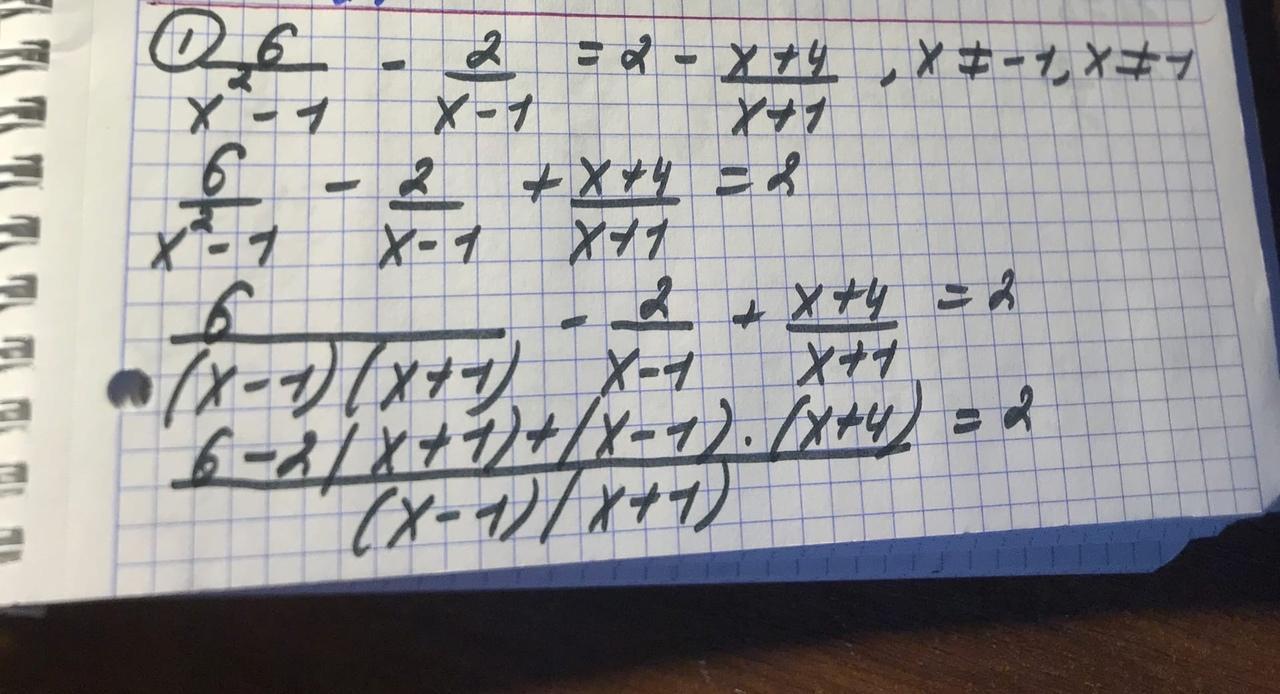 ① 6/(x²-1) - 2/(x-1) = 2 - (x+4)/(x+1), x≠-1, x≠1
6/(x²-1) - 2/(x-1) + (x+4)/(x+1) = 2
6/((x-1)(x+1)) - 2/(x-1) + (x+4)/(x+1) = 2
(6-2(x+1)+(x-1)·(x+4))/((x-1)(x+1)) = 2